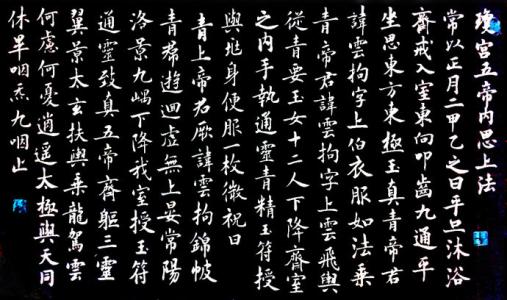 瓊宮五帝內思上法
常以正月二甲乙之日平旦沐浴
齋戒入室東向叩齒九通平
坐思東方東極玉真青帝君
諱雲拘字上伯衣服如法乘
青帝君諱雲拘字上雲飛輿
從青要玉女十二人下降齋室
之內手執通靈青精玉符授
與兆身便服一枚微祝曰
青上帝君厥諱雲拘錦帔
青裙遊迴虛無上晏常陽
洛景九嵎下降我室授玉符
通靈致真五帝齊軀三靈
翼景太玄扶輿乘龍駕雲
何慮何憂逍遙太極與天同
休畢咽炁九咽止